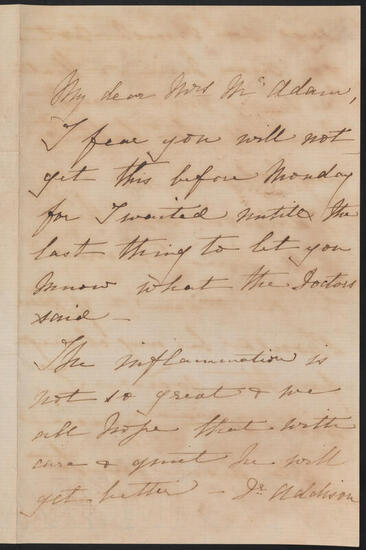 My dear Mrs McAdam,
I fear you will not
get this before Monday
for I waited untill the
last thing to let you
know what the Doctors
said -
The inflammation is
not so great & we
all hope that with
care & quiet he will
get better - Dr Addison